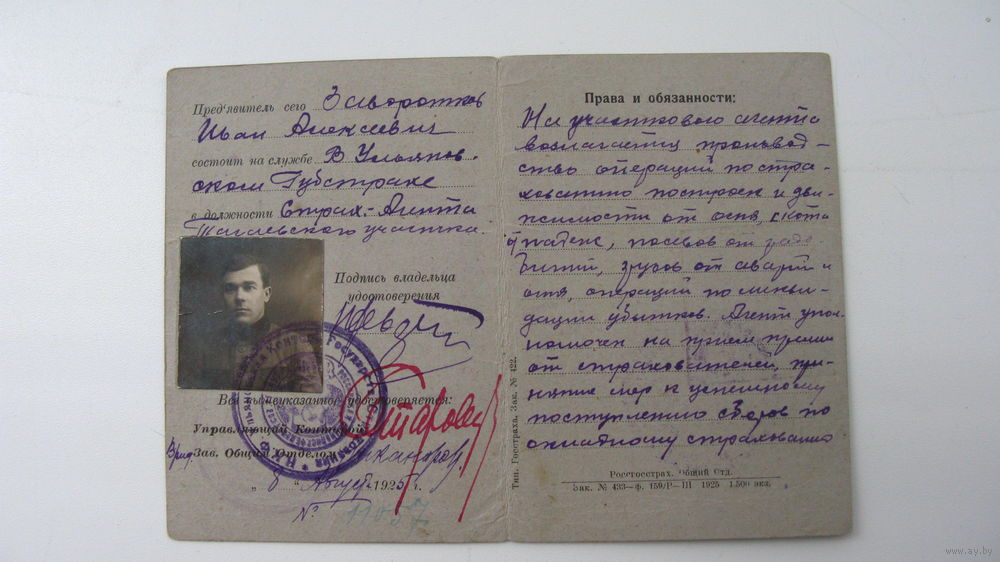 Пред'явитель сего Заворотков
Иван Алексеевич
состоит на службе В Ульянов-
ском Губстрахе
в должности Страх.-Агента
Тагаевского участка.
Подпись владельца
удостоверения
Все вышеуказанное удостоверяется:
Управляющий Конторой
Врид. Зав. Общим Отделом
„ 8 “ Август 1925 г.
№ 11037
Права и обязанности:
На участкового агента
возлагается производ-
ство операций по стра-
хованию построек и дви-
жимости от огня, скота
от падеж, посевов от градо-
бития, грузов от аварий и
огня, операций по ликви-
дации убытков. Агент упол-
номочен на прием премии
от страхователей, при-
нятие мер к успешному
поступлению сборов по
окладному страхованию
Росгосстрах. Общий Отд.
Зак. № 433—ф. 159/Р—III 1925 1.500 экз.
Тип. Госстраха. Зак. № 422.
www.ay.by